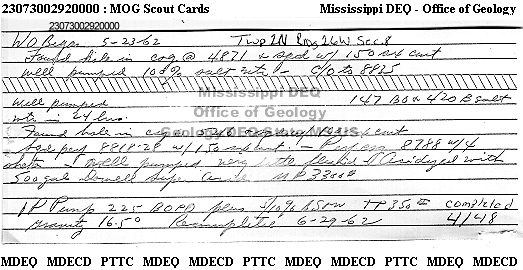 23073002920000 : MOG Scout Cards Mississippi DEQ - Office of Geology
23073002920000
W/O Began 5-23-62 Twp 2N Rng 16W Sec. 8
Found hole in csg @ 4871 & sqzd w/ 150 sx cmt
well pumped 100% salt wtr - C/O to 8825
Mississippi DEQ
Well pumped 147 BO & 420 B salt
wtr in 24 hrs.
Office of Geology
Found hole in csg
Sqz perf 8818-28 w/ 150 sx cmt - Perf csg 8788 w/4
shots - well pumped very little fluid & Acidized with
500 gal Dowell Super Acid MP 3300#
IP Pump 225 BOPD plus 5/10% BS&W TP 350# completed
gravity 16.5° Recompletion 6-29-62 4/48
MDEQ MDECD PTTC MDEQ MDECD PTTC MDEQ MDECD PTTC MDEQ MDECD